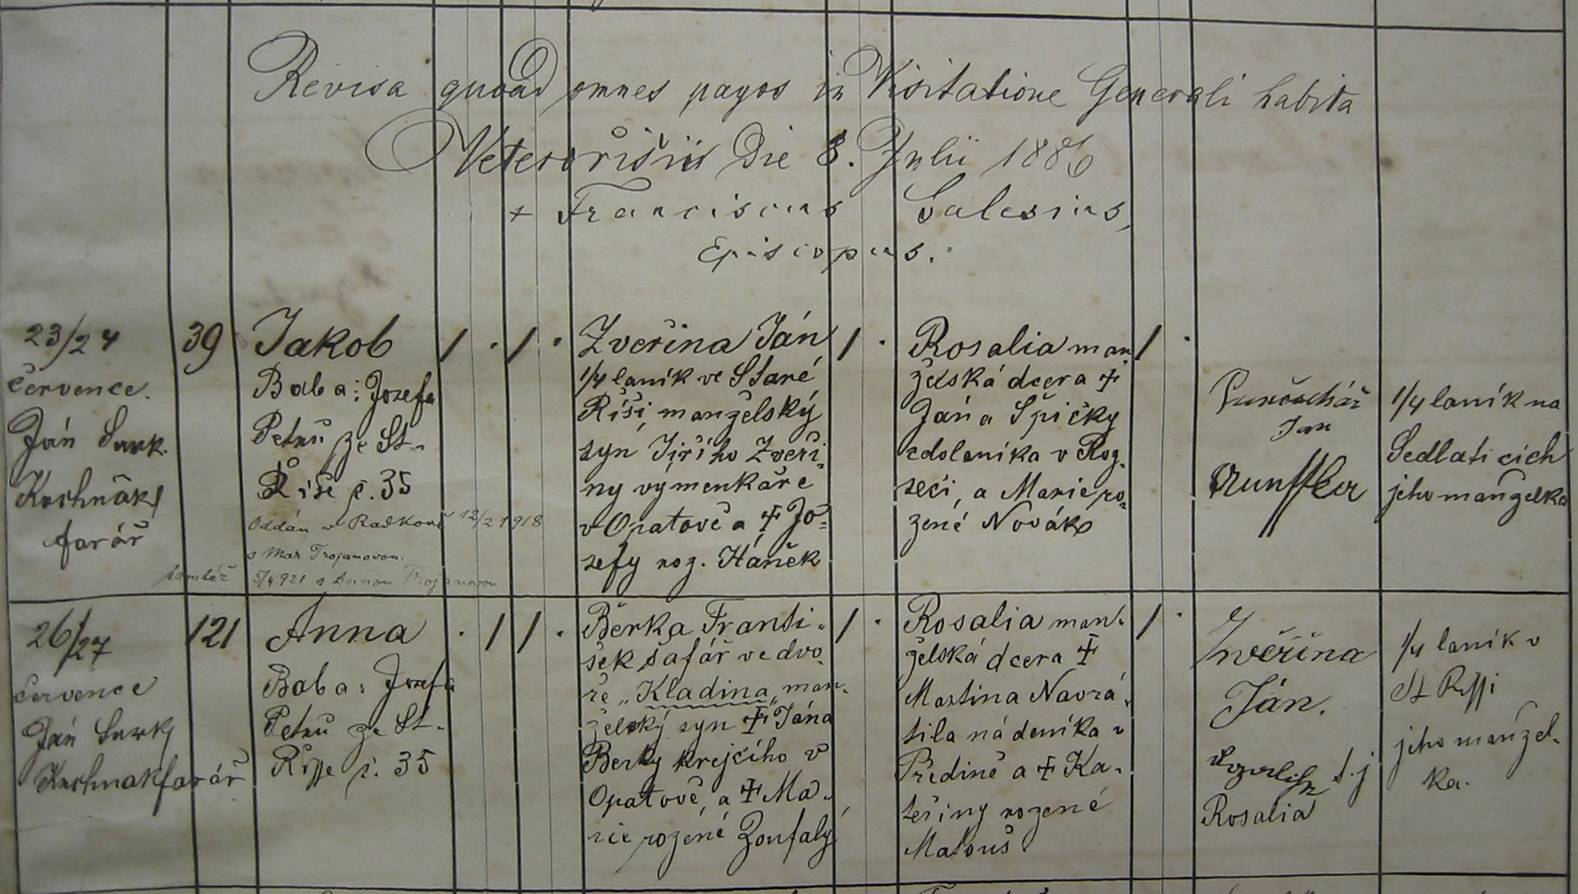 Revisa quoad omnes pagos in Visitatione Generali habita
Veterořišii Die 8. Julii 1886
+ Franciscus Salesius,
Episcopus.
23/24
července.
Ján
farář
39
Jakob
Baba: Jozefa
Petrů ze St.
Říše č. 35
Oddán v Radkově 12/2 1918
s Mar Trojanovou.
tamtéž 5/4 921 s Annou Trojanovou
/ . / .
Zveřina Ján
1/4 laník ve Staré
Říši, manželský
syn Jiřího Zveři-
ny výmenkáře
v Opatově a + Jo-
sefy roz. Háněk
/ .
Rosalia man
želská dcera +
Jána Špičky
celolaníka v Roz-
seči, a Marie ro-
zené Novák
/ .
Jan
1/4 laník na
Sedlaticích
jeho manželka
26/27
července
Ján
farář
121
Anna
Baba: Jozefa
Petrů ze St.
Řisse č. 35
. / / .
Berka Franti-
šek šafář ve dvo-
ře „Kladina„ man-
želský syn + Jána
Berky krejčího v
Opatově, a + Ma-
rie rozené Zoufalý
/ .
Rosalia man-
želská dcera +
Martina Navrá-
tila nádeníka v
Předíně a + Ka-
teřiny rozené
Matouš
/ .
Zvěřina
Ján.
Rosalia
1/4 laník v
St Řissi
jeho manžel-
ka.